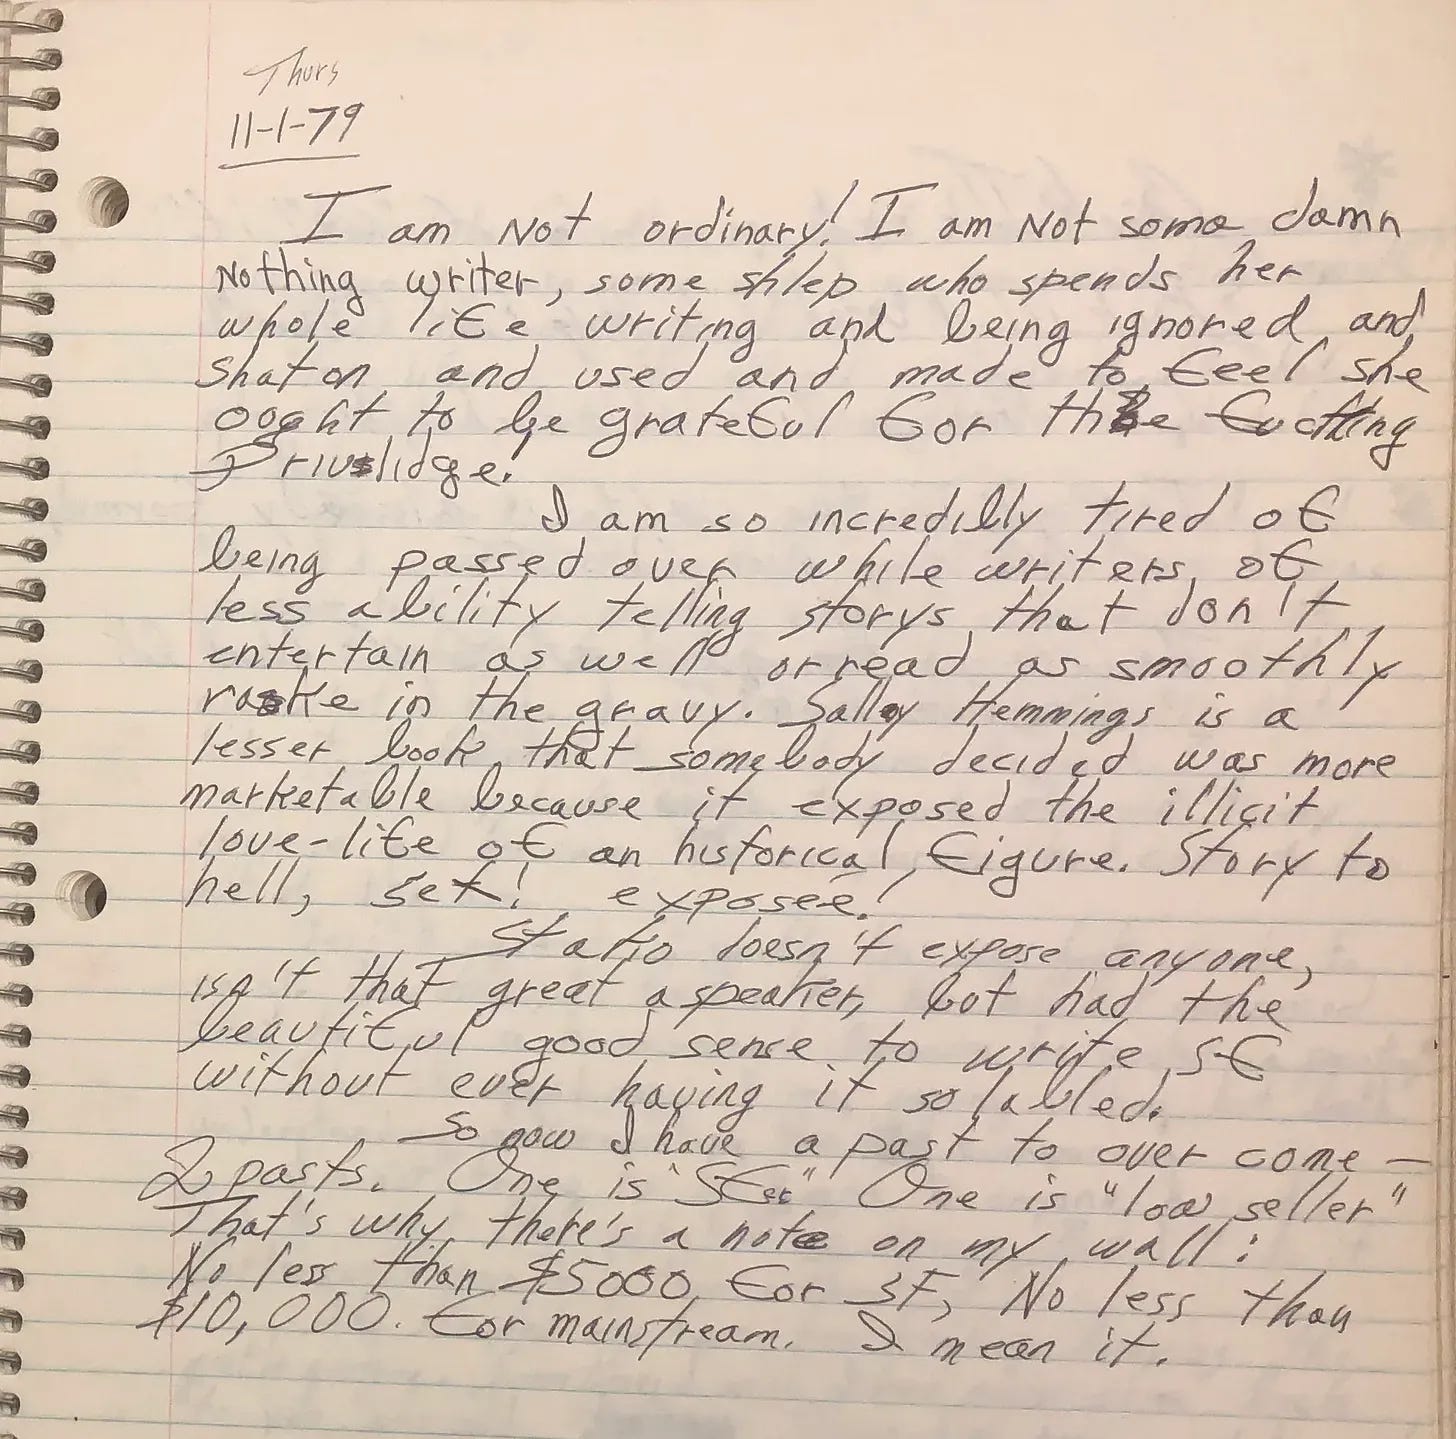 Thurs
11-1-79
I am Not ordinary! I am Not some damn
Nothing writer, some shlep who spends her
whole life writing and being ignored and
shat on and used and made to feel she
ought to be grateful for the fucking
Privilidge!
I am so incredibly tired of
being passed over while writers of
less ability telling storys that don't
entertain as well or read as smoothly
rake in the gravy. Sally Hemmings is a
lesser book that somebody decided was more
marketable because it exposed the illicit
love-life of an historical figure. Story to
hell, sex! exposeé!
doesn't expose anyone,
isn't that great a speaker, but had the
beautiful good sense to write SF
without ever having it so labled.
So now I have a past to over come —
2 pasts. One is "SFer" One is "low seller"
That's why there's a note on my wall:
No less than $5000 for SF, No less than
$10,000. for mainstream. I mean it.